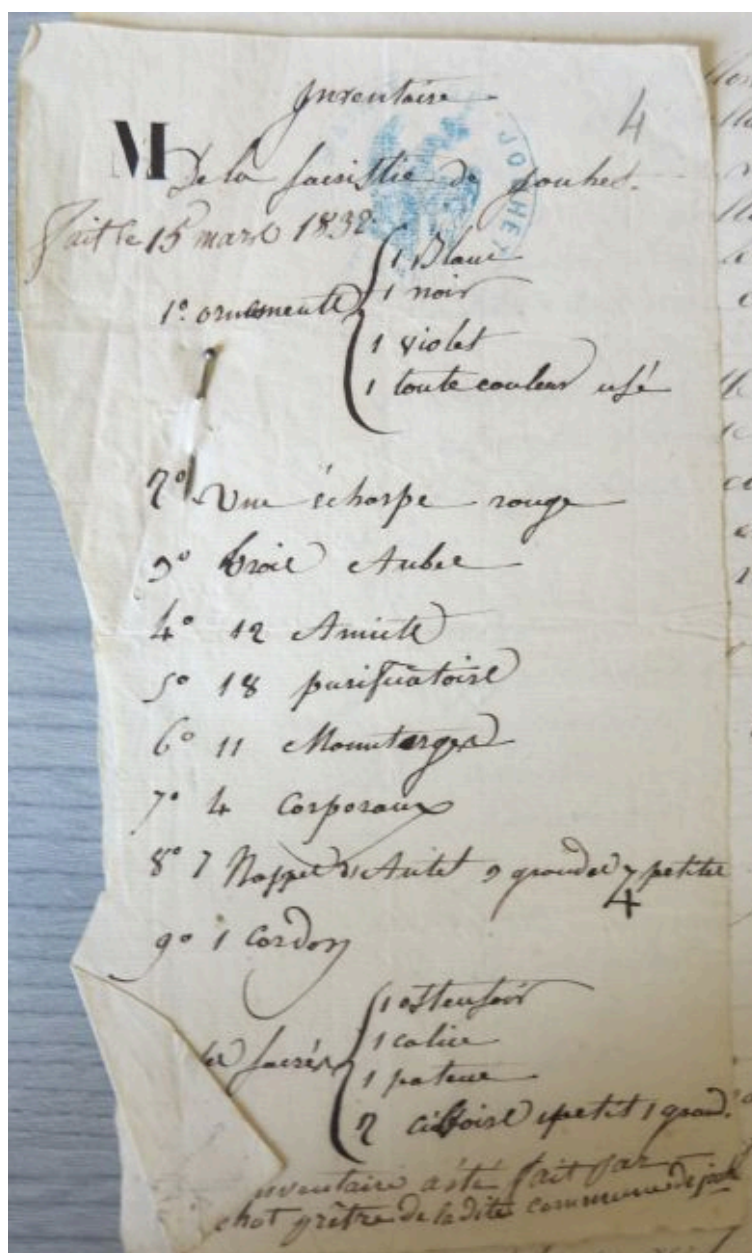 Inventaire
4
M De la sacristie de jouhet.
JOUHET
fait le 15 mars 1832
1° ornements
1 Blanc
1 noir
1 violet
1 toute couleur usé
2° Une écharpe rouge
3° trois Aubes
4° 12 Amicts
5° 18 purificatoires
6° 11 Manuterges
7° 4 Corporaux
8° 7 Nappes d'Autel 3 grandes 4 petites
4
9° 1 Cordon
sacrés
1 ostensoir
1 calice
1 patene
2 ciboires 1 petit 1 grand.
inventaire a été fait par
chot prêtre de la dite commune de jouh